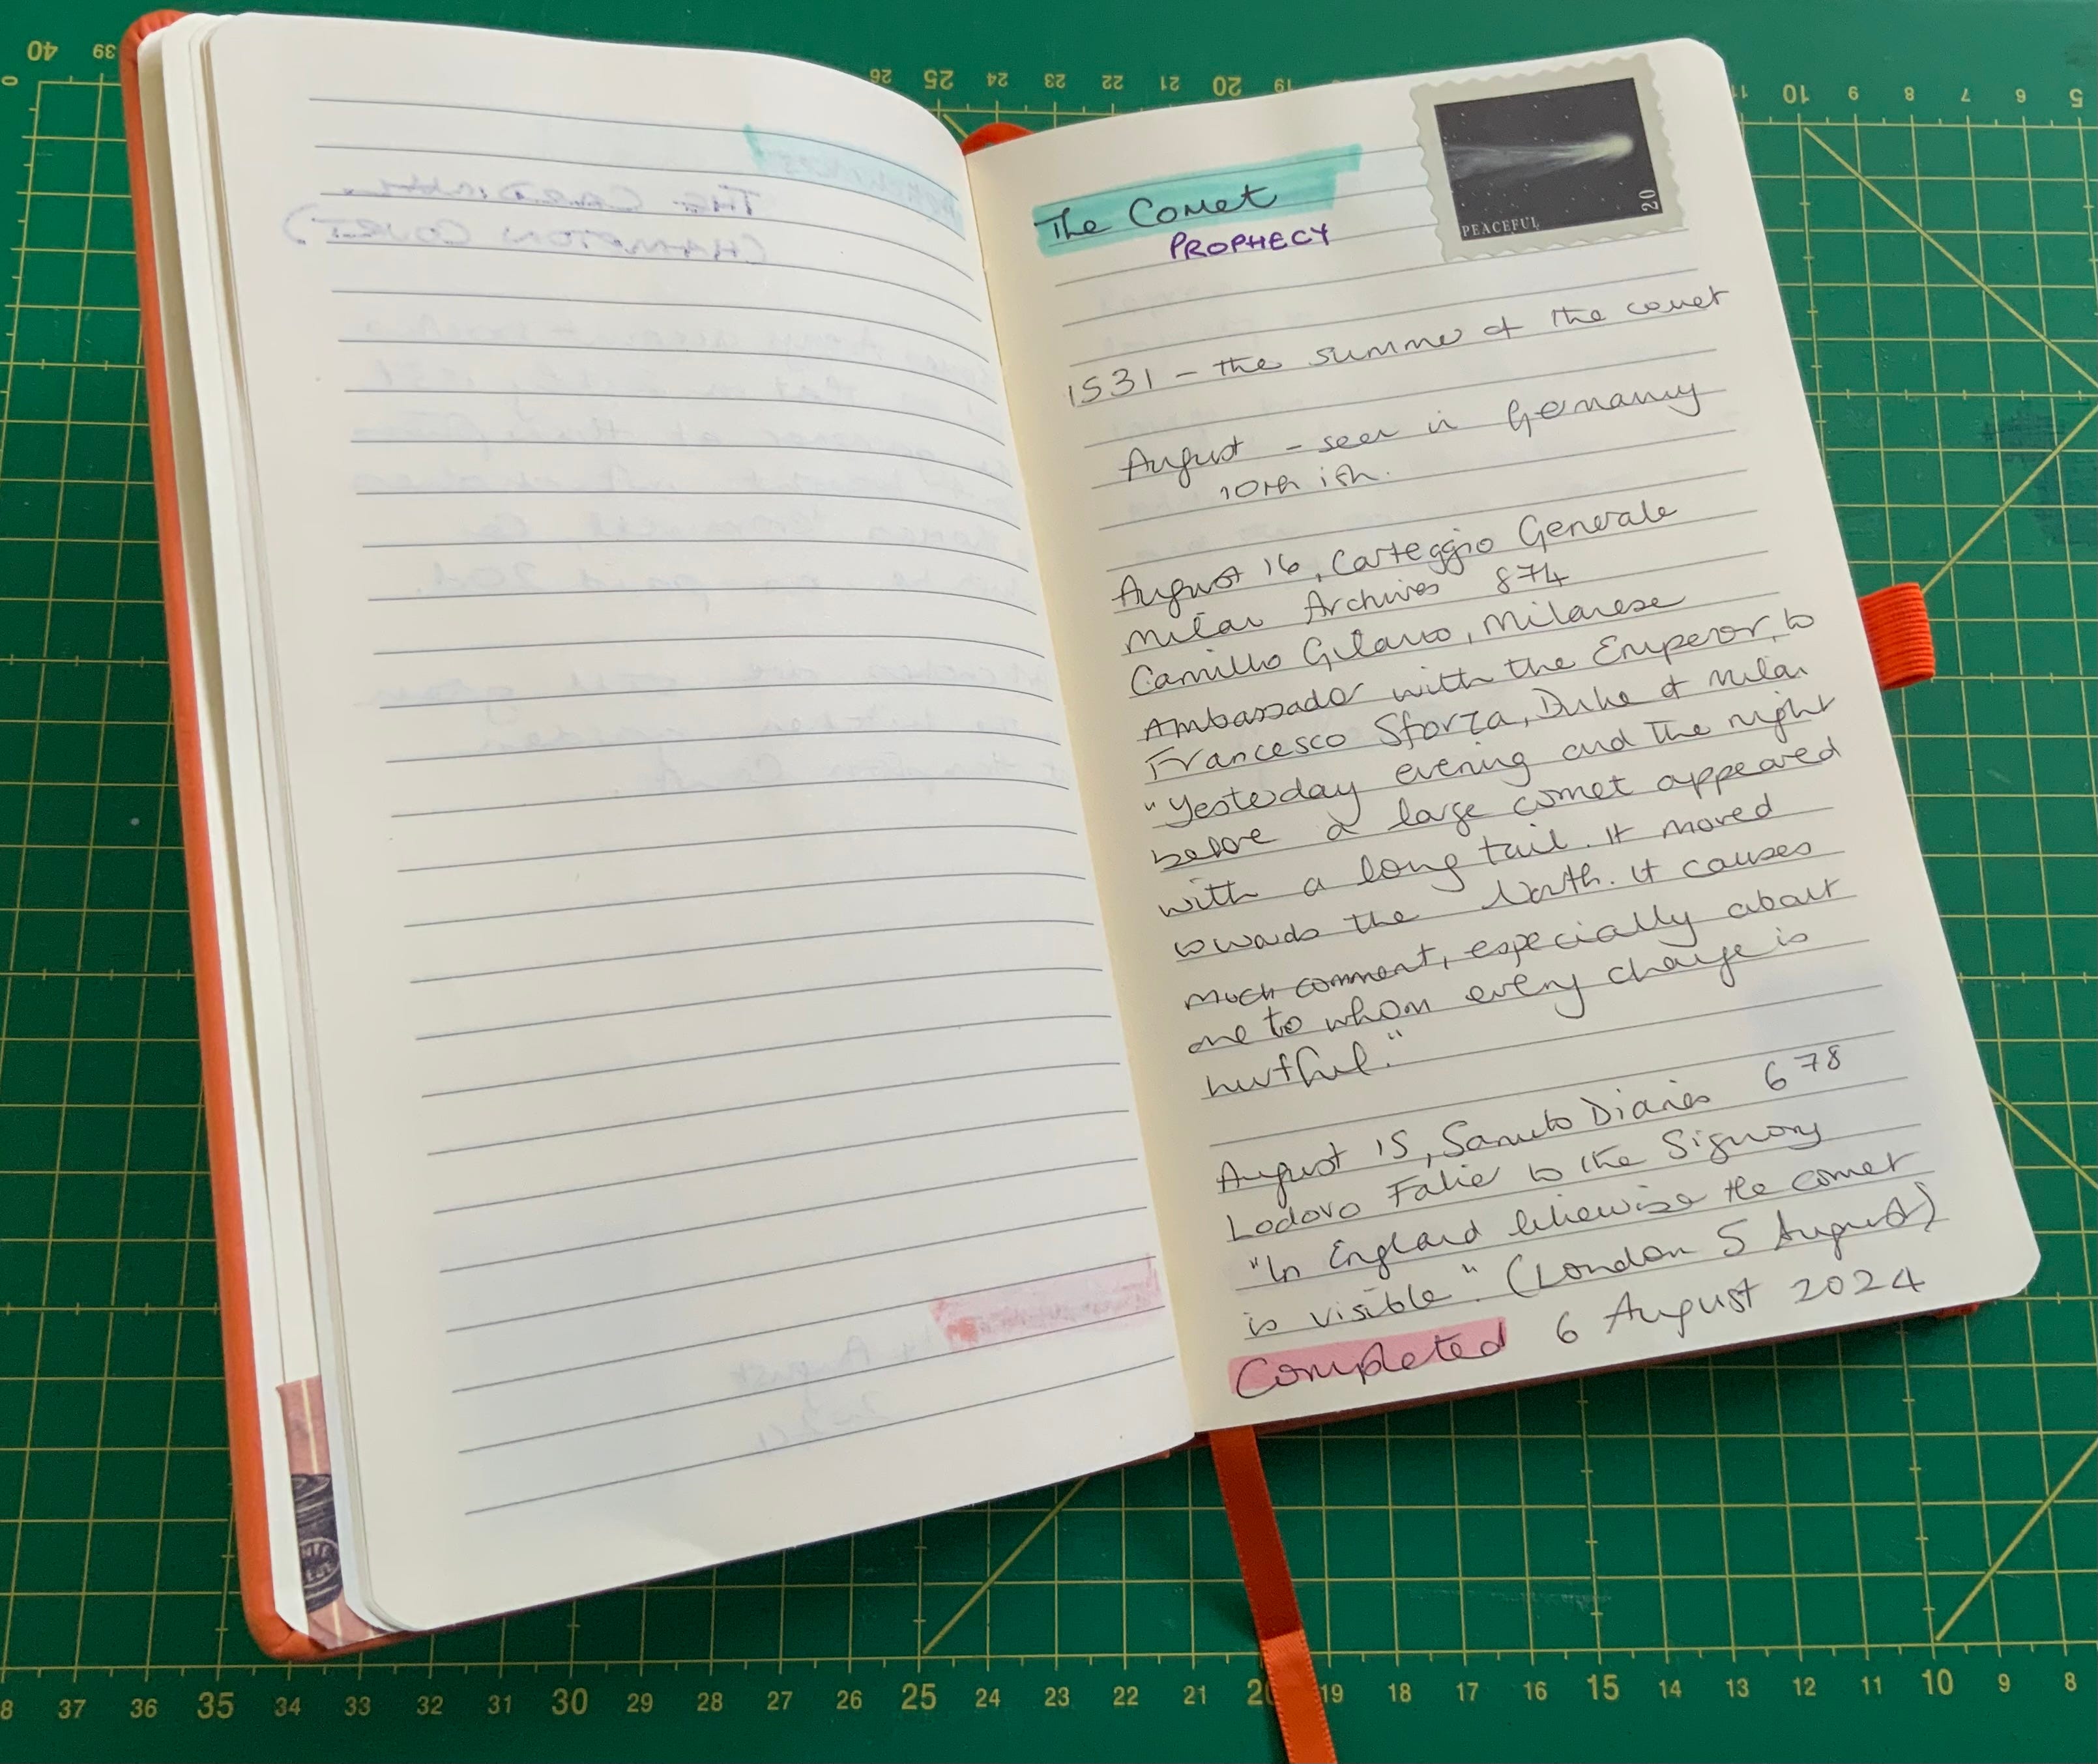 The Comet
PROPHECY
PEACEFUL
20
1531 - the summer of the comet
August - seen in Germany
10th ish.
August 16, Carteggio Generale
Milan Archives 874
Camillo Gilano, Milanese
Ambassador with the Emperor, to
Francesco Sforza, Duke of Milan
"Yesterday evening and the night
before a large comet appeared
with a long tail. It moved
towards the North. It causes
much comment, especially about
one to whom every change is
hurtful."
August 15, Sanuto Diaries 678
Lodovo Falier to the Signory
"In England likewise the comet
is visible". (London 5 August)
Completed 6 August 2024
40 39 26 25 24 23 22 21 20 19 11 10 9 8 7 6 5
0
8 37 36 35 34 33 32 31 30 29 28 27 26 25 24 23 22 21 20 19 18 17 16 15 14 13 12 11 10 9 8